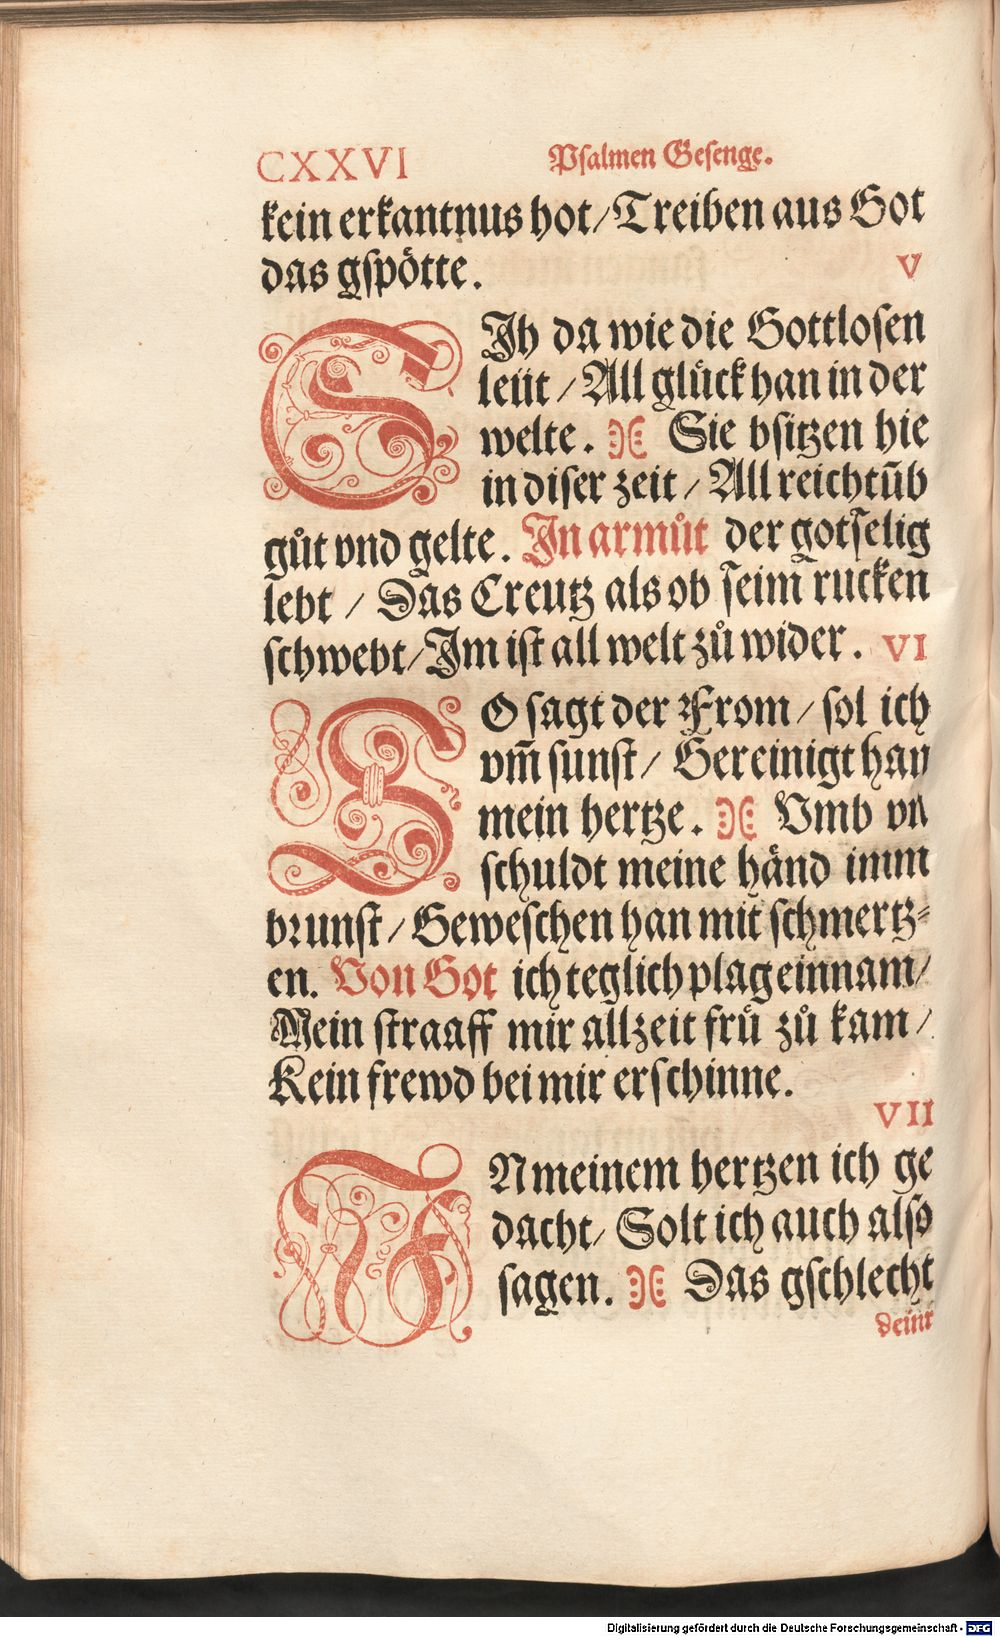 CXXVI Psalmen Gesenge.
kein erkantnus hot/Treiben aus Got
das gspötte. V
SIh da wie die Gottlosen
leüt / All glück han in der
welte. Sie bsitzen hie
in diser zeit / All reichtūb
gůt vnd gelte. In armůt der gotselig
lebt / Das Creutz als ob seim rucken
schwebt/Im ist all welt zů wider. VI
SO sagt der From / sol ich
vm̄ sunst / Gereinigt han
mein hertze. Vmb vn
schuldt meine händ imm
brunst / Geweschen han mit schmertz⸗
en. Von Got ich teglich plag einnam/
Mein straaff mir allzeit frü zů kam /
Kein frewd bei mir erschinne.
VII
IN meinem hertzen ich ge
dacht/ Solt ich auch also
sagen. Das gschlecht
deinr
Digitalisierung gefördert durch die Deutsche Forschungsgemeinschaft - DFG